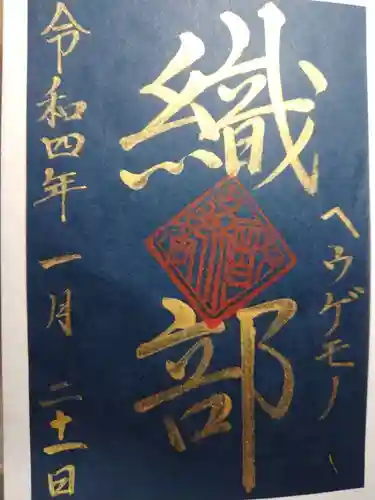 ヘウゲモノ
織部
令和四年 一月 二十一日